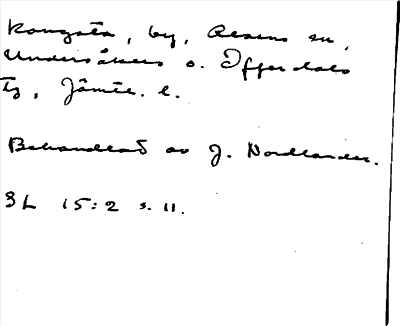 Kougsta, by, Alsens sn,
Undersåkers o. Offerdals
tg, Jämtl. l.
Behandlad av J. Nordlander.
SL 15:2 s. 11.